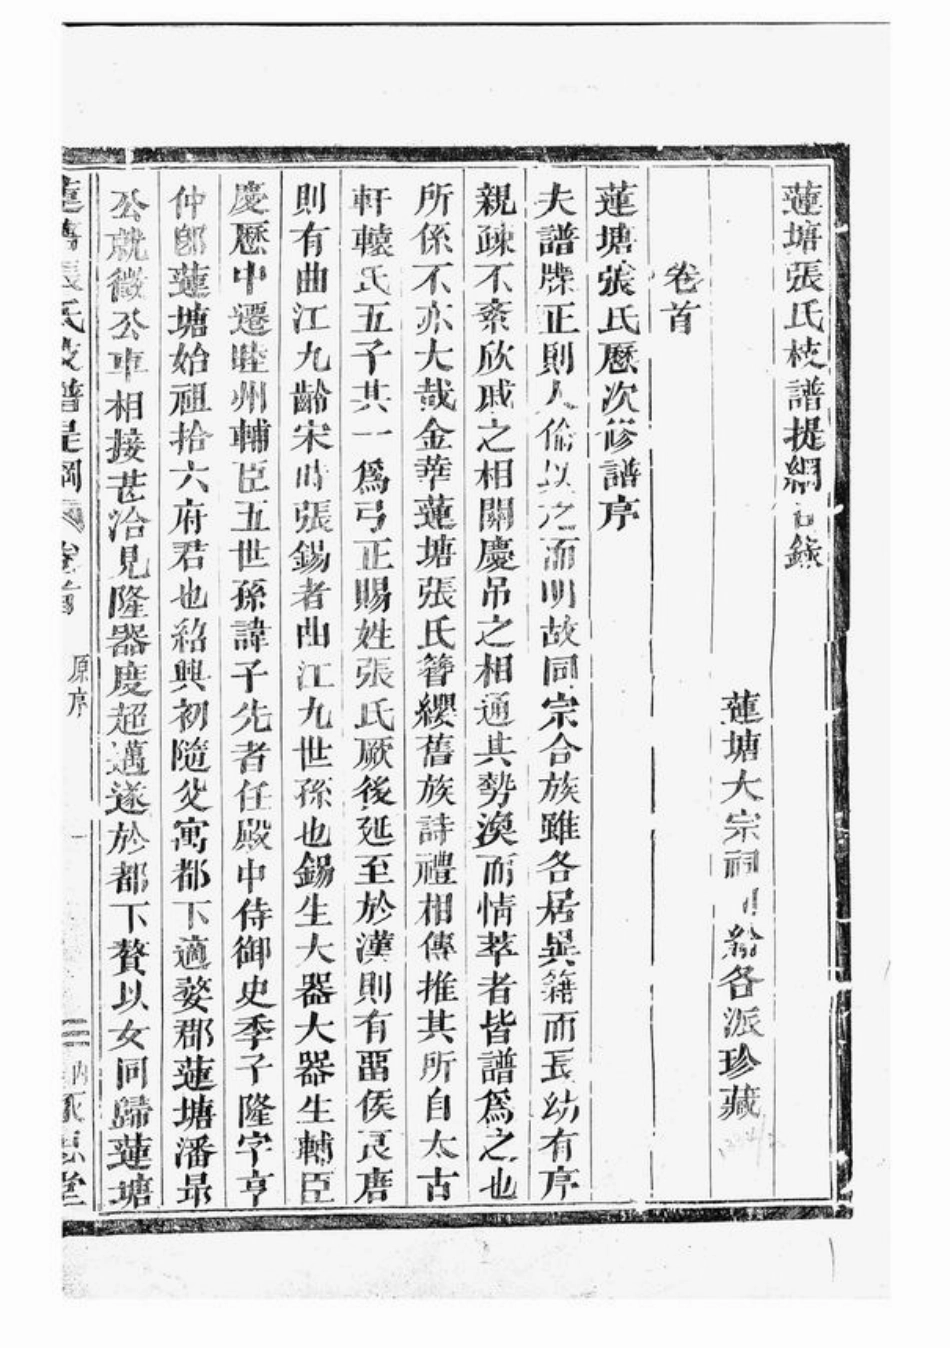 蓮塘張氏枝譜提綱目錄
蓮塘大宗祠刊給各派珍藏
卷首
蓮塘張氏歷次修譜序
夫譜牒正則人倫以之而明故同宗合族雖各居異籍而長幼有序
親疎不紊欣戚之相關慶吊之相通其勢渙而情萃者皆譜爲之也
所係不亦大哉金華蓮塘張氏簪纓舊族詩禮相傳推其所自太古
軒轅氏五子其一爲弓正賜姓張氏厥後延至於漢則有畱侯良唐
則有曲江九齡宋時張錫者曲江九世孫也錫生大器大器生輔臣
慶歷中遷睦州輔臣五世孫諱子先者任殿中侍御史季子隆字亨
仲卽蓮塘始祖拾六府君也紹興初隨父寓都下適婺郡蓮塘潘昻
公就徵公車相接甚洽見隆器度超邁遂於都下贅以女同歸蓮塘
蓮塘張氏枝譜是綱 卷首 原序 一 永思堂